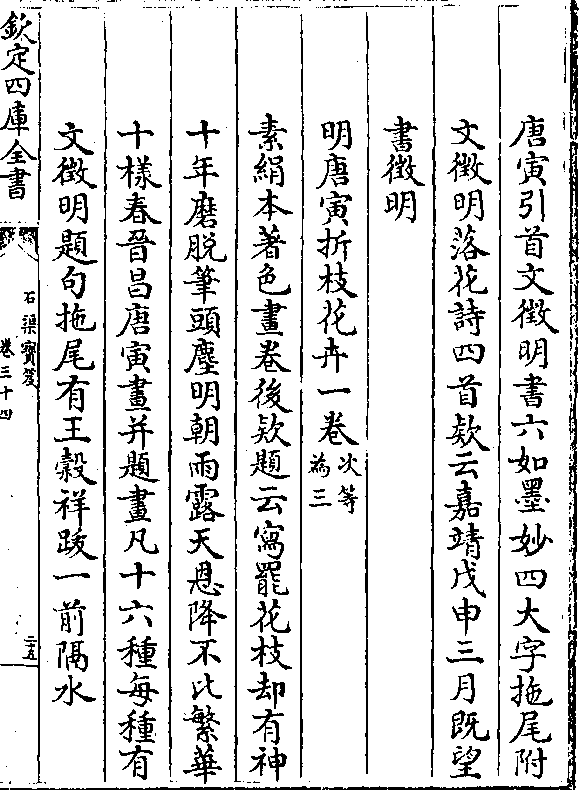 唐寅引首文徴明書六如墨妙四大字拖尾附
文徴明落花詩四首欵云嘉靖戊申三月既望
書徴明
明唐寅折枝花卉一卷次等
為三
素絹本著色畫卷後欵題云寫罷花枝却有神
十年磨脱筆頭塵明朝雨露天恩降不比繁華
十様春晉昌唐寅畫并題畫凡十六種每種有
文徴明題句拖尾有王榖祥跋一前隔水
欽定四庫全書
石渠寶笈
卷三十四
三五